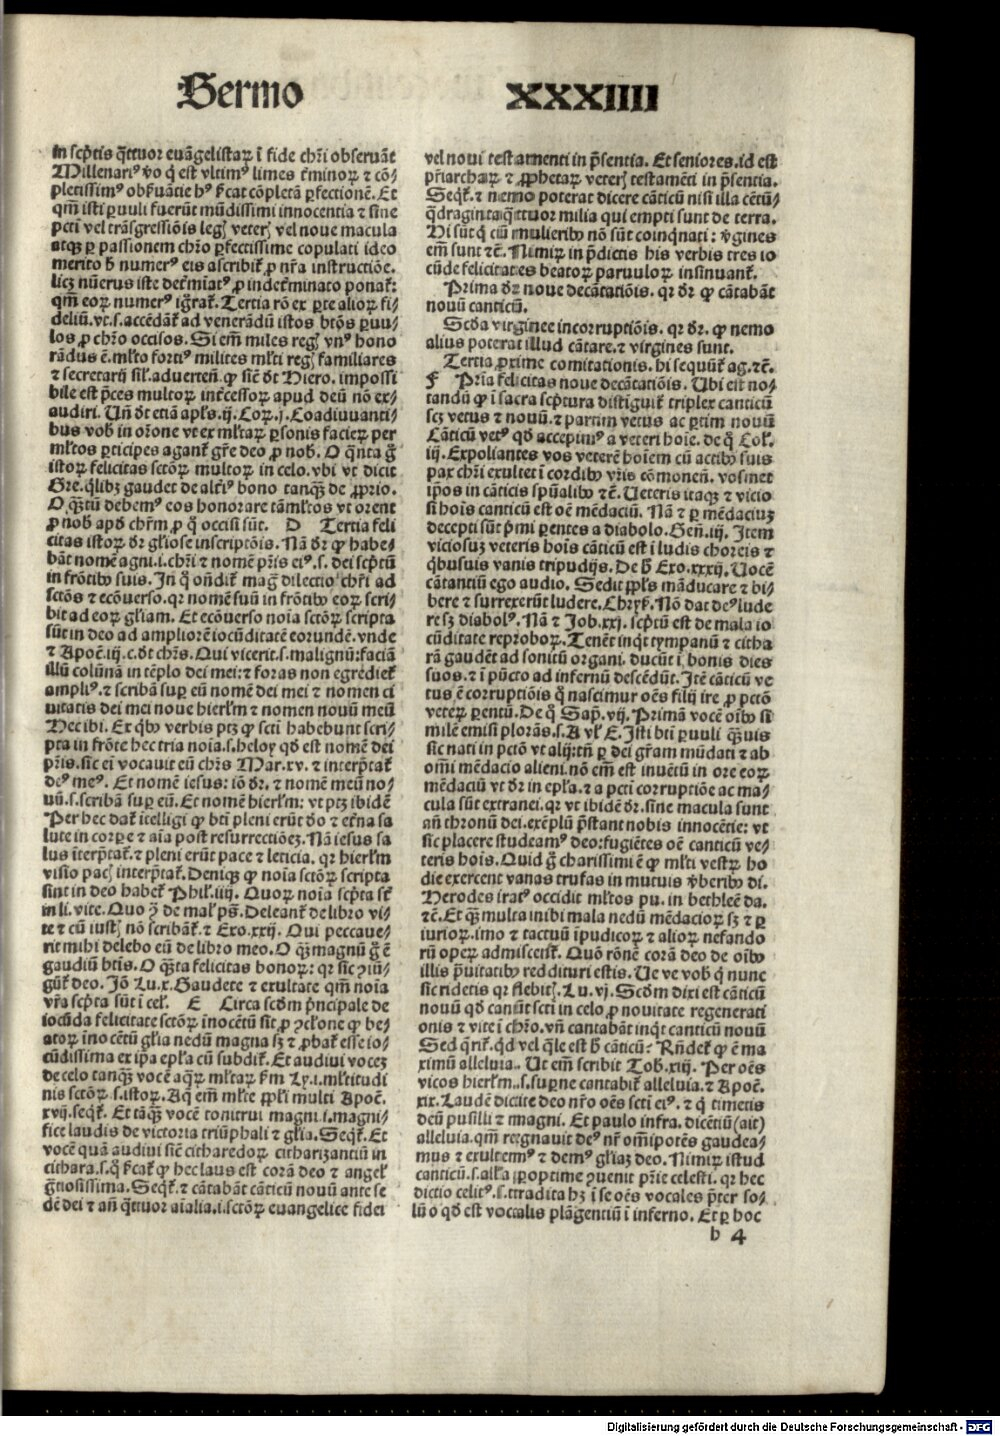 Sermo XXXIIII
in scp̄tis q̄ttuor euāgelistaꝝ ī fide chr̄i obseruāt
Millenariꝰ v̄o q̇ est vltimꝰ limes t̓minoꝝ ⁊ cō⸗
pletissimꝰ obẜuātie hꝰ ẜcat cōpletā ꝑfectionē. Et
qm̄ isti ꝑuuli fuerūt mūdissimi innocentia ⁊ sine
pctī vel trāsgressiōis legꝭ veterꝭ vel noue macula
atqꝫ ꝑ passionem chr̄o ꝑfectissime copulati ideo
merito h̄ numerꝰ eis ascribit᷑ ꝓ nr̄a instructiōe.
licꝫ nūerus iste det̓miatꝰ ꝓ indet̓minato ponat᷑:
qm̄ eoꝝ numerꝰ ig̃rat᷑. Tertia rō ex ꝑte alioꝝ fi⸗
deliū. vt .s. accēdāt ad venerādū istos bt̄os ꝑuu⸗
los ꝓ chr̄o occisos. Si em̄ miles regꝭ vnꝰ hono
rādus ē. ml̄to fortiꝰ milites ml̄ti regꝭ familiares
⁊ secretarij sil̄. aduerten̄. ꝙ sic̄ dt̄ Hiero. impossi
bile est p̄ces multoꝝ int̓cessoꝝ apud deū nō ex⸗
audiri. Un̄ dt̄ etiā apl̄s .ij. Coꝝ .j. Coadiuuanti⸗
bus vob̄ in or̄one vt ex ml̄taꝝ ꝑsonis facieꝝ per
ml̄tos ꝑticipes agant᷑ gr̄e deo ꝓ nob̄. O q̄nta g̃
istoꝝ felicitas sctōꝝ multoꝝ in celo. vbi vt dicit
Gre. q̄libꝫ gaudet de alt̓iꝰ bono tanqꝫ de ꝓprio.
O q̄stū debemꝰ eos honorare tāml̄tos vt orent
ꝓ nob̄ apd̄ chr̄m ꝓ q̇ occisi sūt. D Tertia feli
citas istoꝝ dr̄ gl̄iose inscriptōis. Nā dr̄ ꝙ habe⸗
bāt nomē agni .i. chr̄i ⁊ nomē pr̄is eiꝰ .s. dei scp̄tū
in frōtibꝰ suis. In q̇ on̄dit᷑ mag̃ dilectio chr̄i ad
sctōs ⁊ ecōuerso. qr nomē suū in frōtibꝰ eoꝝ scri⸗
bit ad eoꝝ gl̄iam. Et ecōuerso noīa sctōꝝ scripta
sūt in deo ad ampliorē iocūditatē eorundē. vnde
⁊ Apoc̄ .iij. c. dt̄ chr̄s. Qui vicerit .s. malignū: faciā
illū colūnā in tēplo dei mei: ⁊ foras non egrediet᷑
ampliꝰ. ⁊ scribā suꝑ eū nomē dei mei ⁊ nomen ci
uitatis dei mei noue hierl̄m ⁊ nomen nouū meū
Hec ibi. Ex q̇bꝰ verbis ptꝫ ꝙ sctī habebunt scri⸗
pta in frōte hec tria noīa .s. heloy qd̄ est nomē dei
pr̄is. sic ei vocauit eū chr̄s Mar. xv. ⁊ interp̄tat᷑
deꝰ meꝰ. Et nomē iesus: iō dr̄. ⁊ nomē meū no⸗
uū .s. scribā suꝑ eū. Et nomē hierl̄m: vt ptꝫ ibidē
Per hec dat᷑ īt̄elligi ꝙ bt̄i pleni erūt deo ⁊ et̓na sa
lute in corꝑe ⁊ aīa post resurrectiōeꝫ. Nā iesus sa
lus īterp̄tat᷑. ⁊ pleni erūt pace ⁊ leticia. qr hierl̄m
visio pacꝭ interp̄tat᷑. Deniqꝫ ꝙ noīa sctōꝝ scripta
sint in deo habet᷑ Phil̄. iiij. Quoꝝ noīa scp̄ta st̄
in li. vite. Quo ꝯ̄ de mal̄ pꝰ. Deleant᷑ de libro vi⸗
te ⁊ cū iustꝭ nō scribāt᷑. ⁊ Exo. xxij. Qui peccaue⸗
rit mihi delebo eū de libro meo. O qꝫ magnū g̃ ē
gaudiū bt̄is. O q̄ta felicitas bonoꝝ: qr sic ꝯiū⸗
gūt᷑ deo. Iō Lu. x. Gaudete ⁊ exultate qm̄ noīa
vr̄a scp̄ta sūt ī cel̄. E Circa scd̄m p̄ncipale de
iocūda felicitate sctōꝝ īnocētū sit ꝓ ꝯclone ꝙ be⸗
atoꝝ īnocētū gl̄ia nedū magna sꝫ ⁊ ꝓbat᷑ esse io⸗
cūdissima ex ip̄a epl̄a cū subdit᷑. Et audiui voceꝫ
de celo tanqꝫ vocē aq̄ꝝ ml̄taꝝ ẜm Ly. i. ml̄titudi
nis sctōꝝ .s. istoꝝ. Aq̄ em̄ ml̄te ꝓpl̄i multi Apoc̄.
xvij. seqt᷑. Et tāqꝫ vocē tonitrui magni .i. magni⸗
fice laudis de victoria triūphali ⁊ gl̄ia. Seqt᷑. Et
vocē quā audiui sic̄ citharedoꝝ citharizantiū in
cithara. s. q̇ ẜcat᷑ ꝙ hec laus est corā deo ⁊ angel̄
g̃tiosissima. Seqt᷑. ⁊ cātabāt cāticū nouū ante se
dē dei ⁊ an̄ q̄ttuor aīalia .i. sctōꝝ euangelice fidei
vel noui testamenti in p̄sentia. Et seniores. id est
pr̄iarchaꝝ ⁊ ꝓphetaꝝ veterꝭ testamēti in p̄sentia.
Seqt᷑. ⁊ nemo poterat dicere cāticū nisi illa cētū⸗
q̄draginta q̄ttuor milia qui empti sunt de terra.
Hi sūt q̇ cū mulieribꝰ nō sūt coinq̇nati: v̓gines
em̄ sunt ⁊c̄. Nimiꝝ in p̄dictis his verbis tres io
cūde felicitates beatoꝝ paruuloꝝ insinuant᷑.
Prima dr̄ noue decātatiōis. qr dr̄ ꝙ cātabāt
nouū canticū.
Scd̄a virginee incorruptiōis. qr dr̄. ꝙ nemo
alius poterat illud cātare. ⁊ virgines sunt.
Tertia ꝓxime comitationis. hi sequūt᷑ ag. ⁊c̄.
F Pr̄ia felicitas noue decātatiōis. Ubi est no⸗
tandū ꝙ ī sacra scp̄tura distīguit᷑ triplex canticū
scꝫ vetus ⁊ nouū. ⁊ partim vetus ac ꝑtim nouū
Cāticū vetꝰ qd̄ accepimꝰ a veteri hoīe. de q̇ Col̄.
iij. Expoliantes vos veterē hoīem cū actibꝰ suis
pax chr̄i exultet ī cordibꝰ vr̄is cōmonen̄. vosmet
ip̄os in cāticis sp̄ualibꝰ ⁊c̄. Ueteris itaqꝫ ⁊ vicio
si hoīs canticū est oē mēdaciū. Nā ⁊ ꝑ mēdaciuꝫ
decepti sūt p̄mi ꝑentes a diabolo. Gen̄. iij. Item
viciosuꝫ veteris hoīs cāticū est ī ludis choreis ⁊
q̇busuis vanis tripudijs. De h̄ Exo. xxxij. Uocē
cātantiū ego audio. Sedit ꝓpl̄s māducare ⁊ bi⸗
bere ⁊ surrexerūt ludere. Chrys̄. Nō dat deꝰ lude
re sꝫ diabolꝰ. Nā ⁊ Job. xxi. scp̄tū est de mala io
cūditate reprobaꝝ. Tenēt inqt̄ tympanū ⁊ citha
rā gaudēt ad sonitū organi. ducūt ī bonis dies
suos. ⁊ ī pūcto ad infernū descēdūt. Itē cāticū ve
tus ē corruptiōis q̇ nascimur oēs filij ire ꝓ pctō
veteꝝ ꝑentū. De q̇ Sap̄. vij. Primā vocē oībꝰ si
milē emisi plorās. s. A vl̄ E. Isti bt̄i ꝑuuli qꝫuis
sic nati in pctō vt alij: tn̄ ꝑ dei gr̄am mūdati ⁊ ab
om̄i mēdacio alieni. nō em̄ est inuētū in ore eoꝝ
mēdaciū vt dr̄ in epl̄a. ⁊ a pctī corruptiōe ac ma⸗
cula sūt extranei. qr vt ibidē dr̄. sine macula sunt
an̄ thronū dei. exēplū p̄stant nobis innocētie: vt
sic placere studeamꝰ deo: fugiētes oē canticū ve⸗
teris hoīs. Quid g̃ charissimi ē ꝙ ml̄ti vestꝝ ho
die exercent vanas trufas in mutuis v̓beribꝰ di.
Herodes iratꝰ occidit ml̄tos pu. in bethleē da.
⁊c̄. Et qꝫ multa inibi mala nedū mēdacioꝝ sꝫ ⁊ ꝑ
iurioꝝ. imo ⁊ tactuū īpudicoꝝ ⁊ alioꝝ nefando
rū oꝑeꝝ admiscētis. Quō rōnē corā deo de oībꝰ
illis p̄uitatibꝰ reddituri estis. Ue ve vob̄ q̇ nunc
sic ridetis qr flebitꝭ. Lu. vj. Scd̄m dixi est cāticū
nouū qd̄ canūt sctī in celo ꝓ nouitate regenerati
onis ⁊ vite ī chr̄o. vn̄ cantabāt inqt̄ canticū nouū
Sed q̄rit᷑. qd̄ vel q̄le est h̄ cāticū: Rn̄det᷑ ꝙ ē ma
ximū alleluia. Ut em̄ scribit Tob. xiij. Per oēs
vicos hierl̄m .s. suꝑne cantabit᷑ alleluia. ⁊ Apoc̄.
xix. Laudē dicite deo nr̄o oēs sctī eiꝰ. ⁊ q̇ timetis
deū pusilli ⁊ magni. Et paulo infra. dicētiū (ait)
alleluia. qm̄ regnauit deꝰ nr̄ om̄ipotēs gaudea⸗
mus ⁊ exultemꝰ ⁊ demꝰ gl̄iaꝫ deo. Nimiꝝ istud
canticū .s. all̄a ꝑoptime ꝯuenit pr̄ie celesti. qr hec
dictio celitꝰ .s. tradita hꝫ ī se oēs vocales p̄ter so⸗
lū o qd̄ est vocalis plāgentiū ī inferno. Et ꝑ hoc
b 4
Digitalisierung gefördert durch die Deutsche Forschungsgemeinschaft - DFG